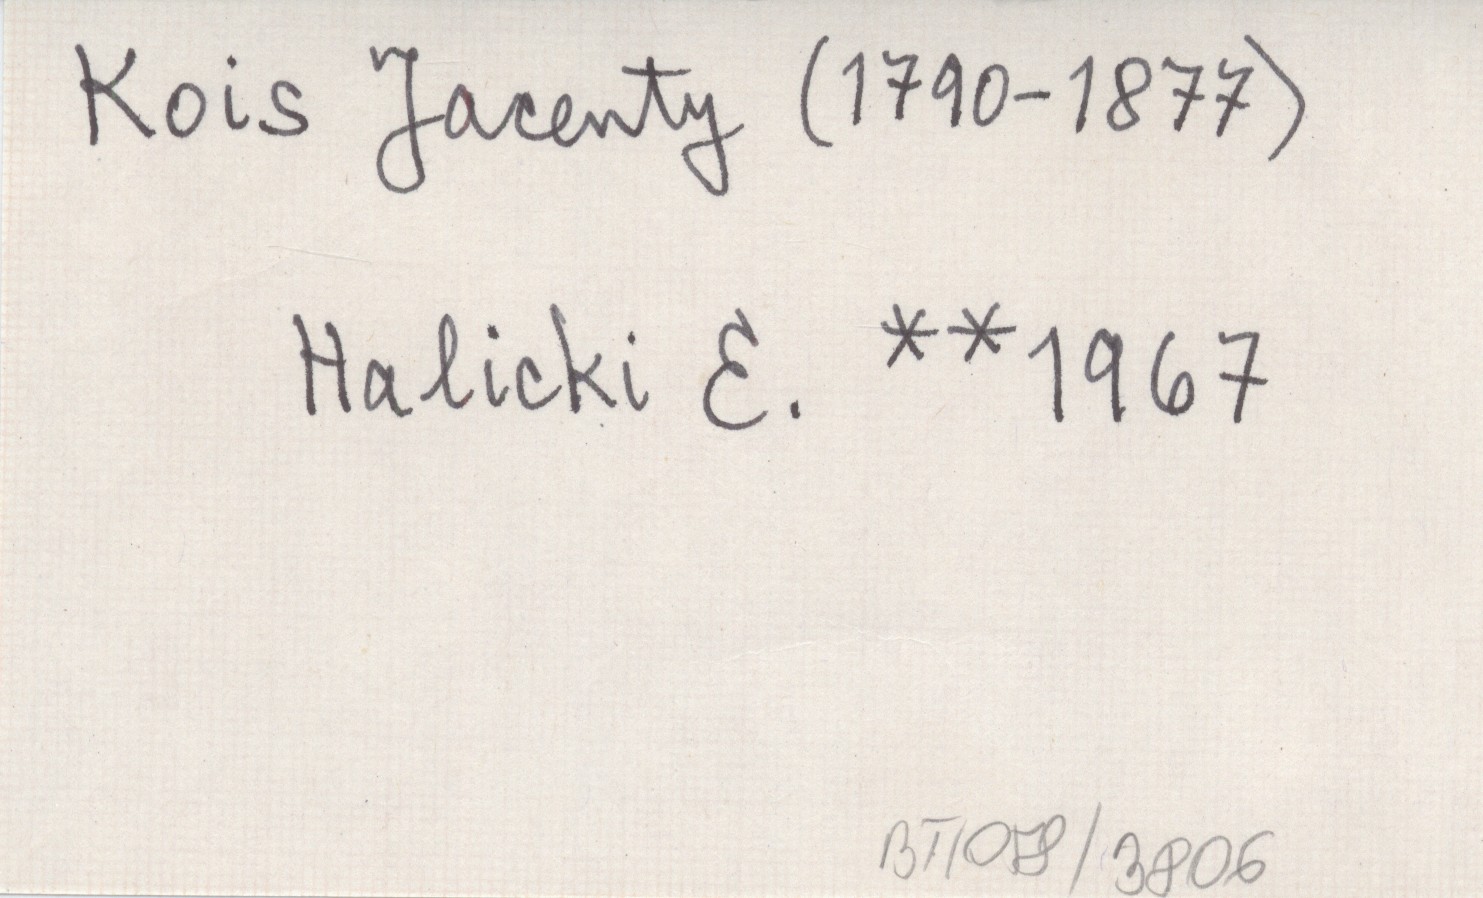 Kois Jacenty (1790-1877)
Halicki E. **1967
BT/078/3806